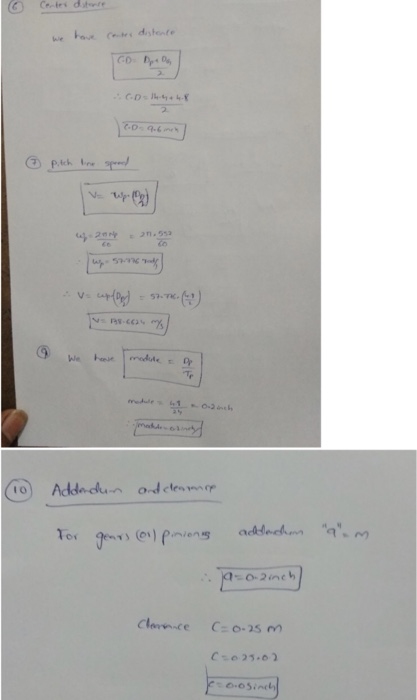 6 Center distance
We have center distance
C.D = Dp + Dg / 2
∴ C.D = 14.4 + 4.8 / 2
C.D = 9.6 inch
7 Pitch line speed
V = wp. (Dp / 2)
wp = 2πNp / 60 = 2π × 552 / 60
∴ wp =
∴ V = wp (Dp / 2) =
V =
9 We have module = Dp / Tp
module = 4.8 / 24 = 0.2 inch
∴ module = 0.2 inch
10 Addendum and clearance
For gears (or) pinions addendum "a" = m
∴ a = 0.2 inch
Clearance C = 0.25 m
C = 0.25 × 0.2
C = 0.05 inch